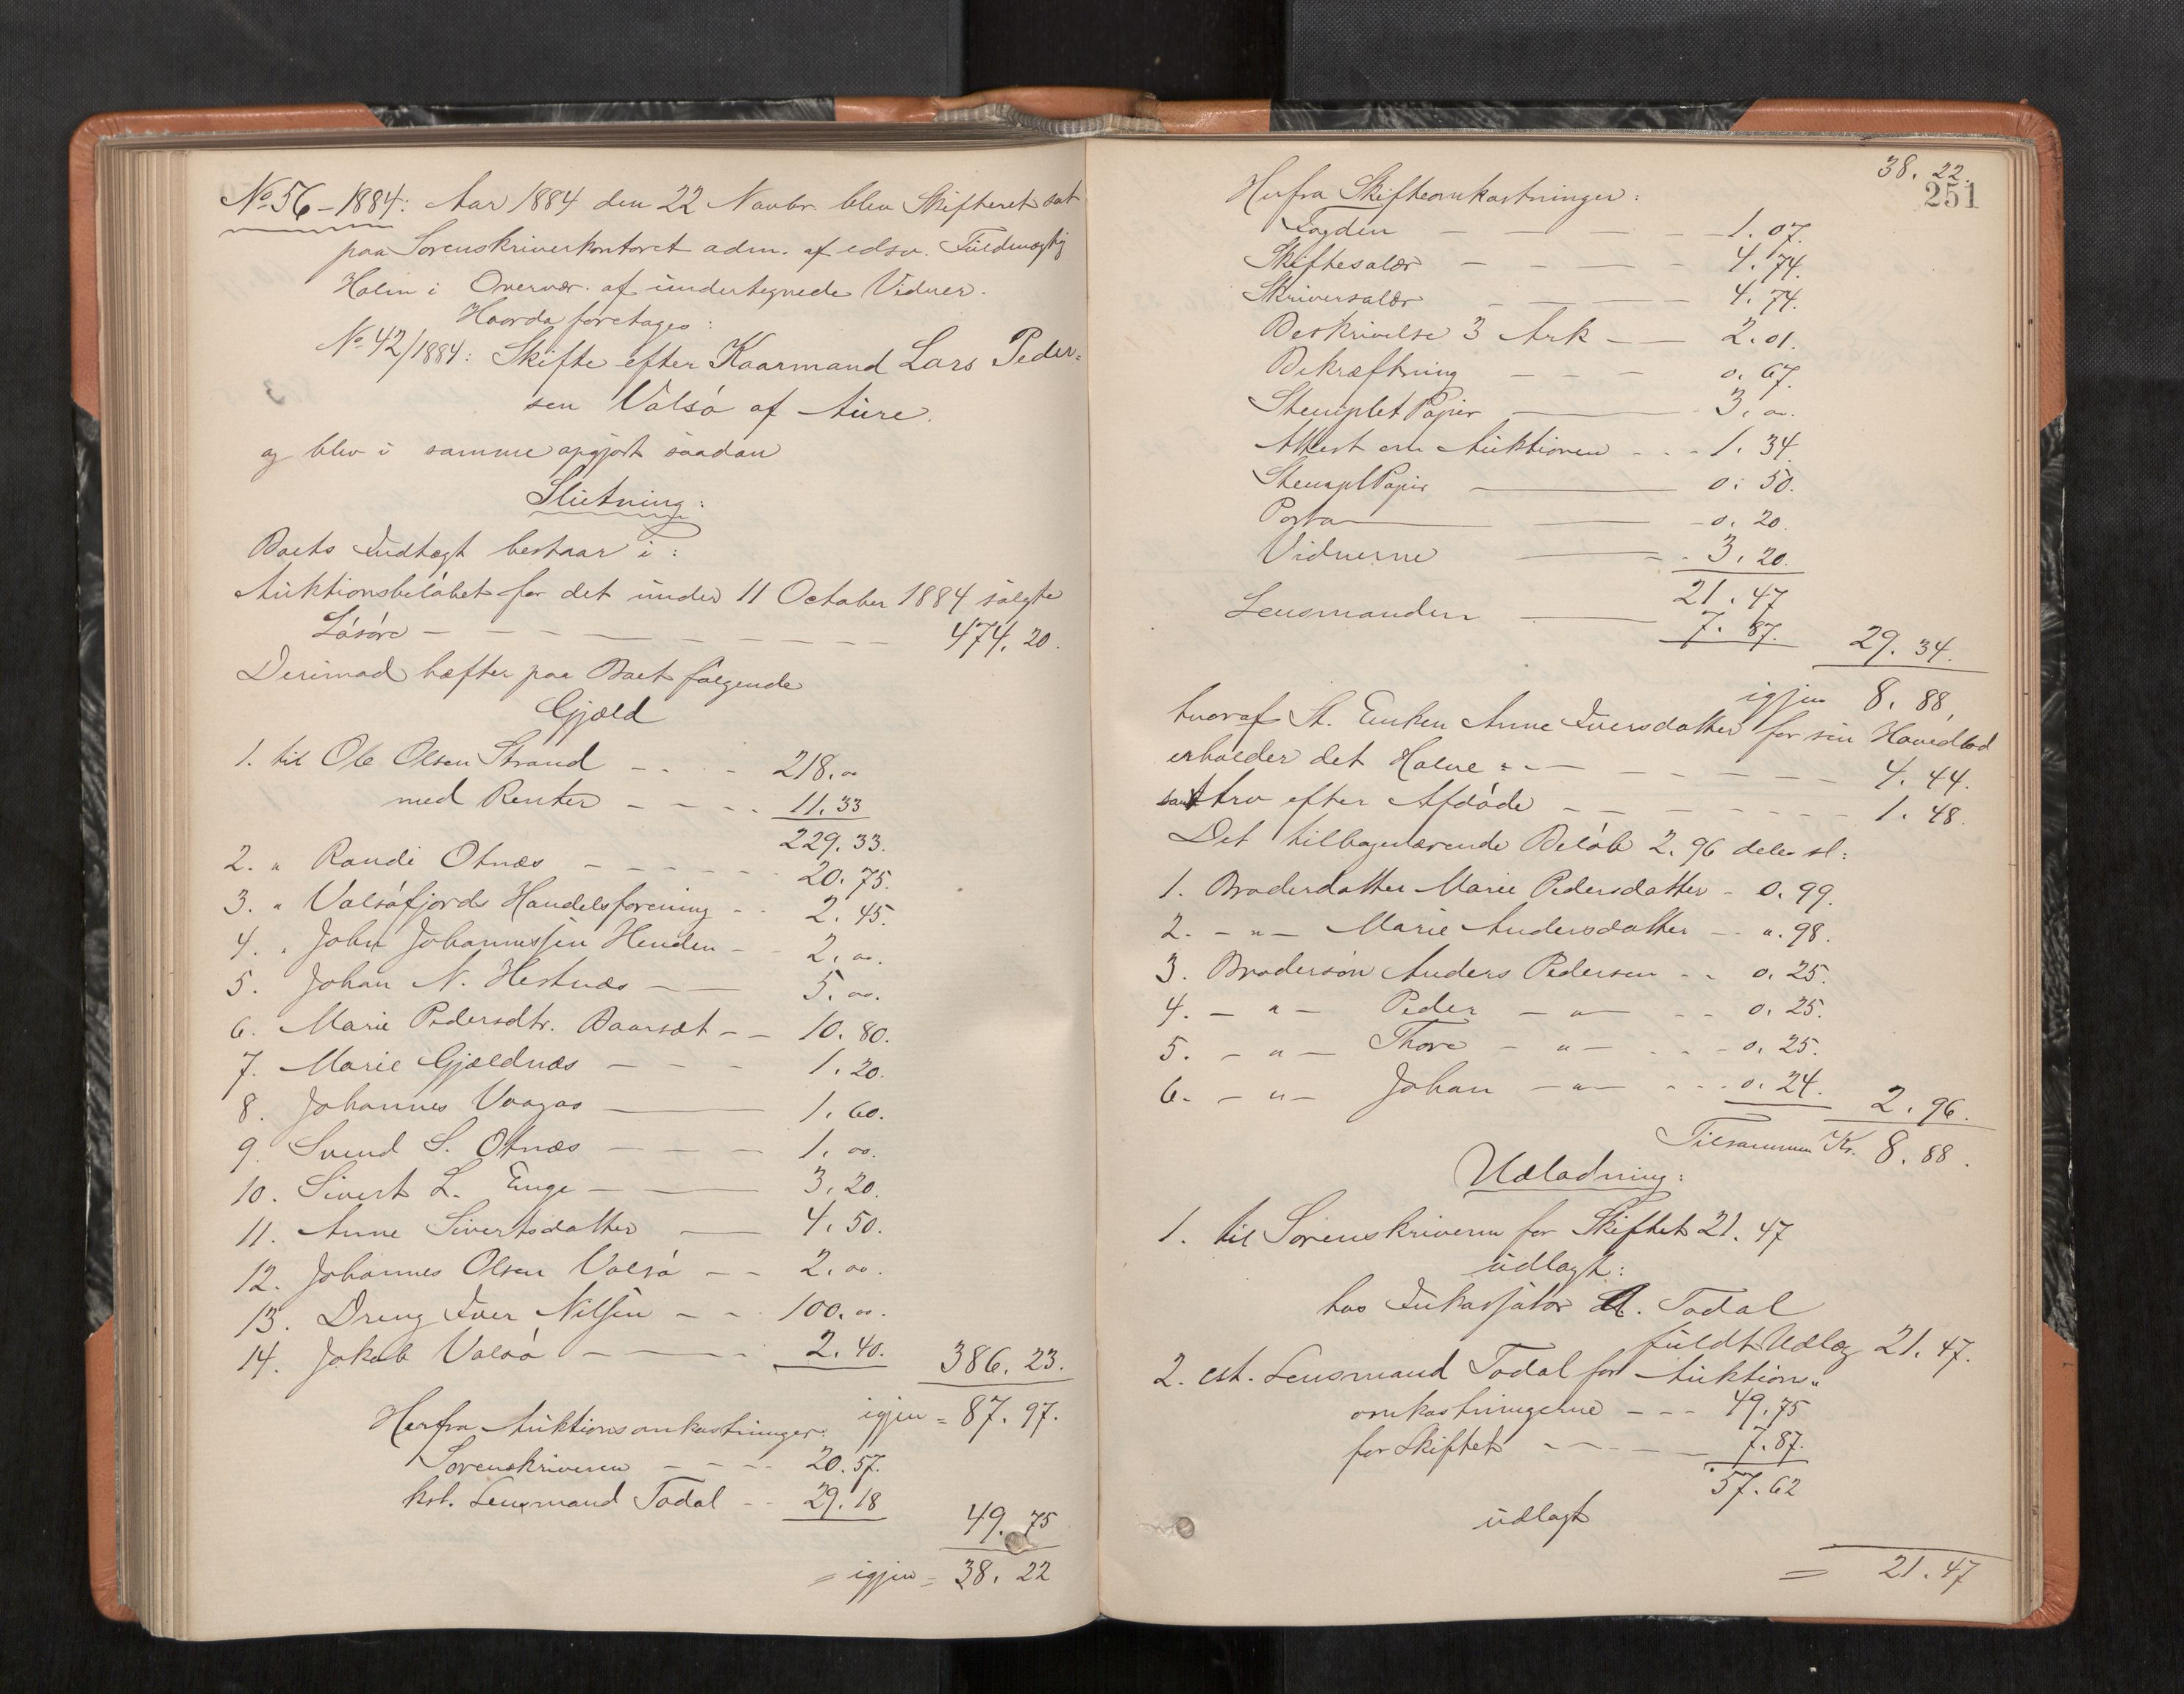 No 56 - 1884: Aar 1884 den 22 Novbr. blev Skifteret sat
paa Sorenskriverkontoret adm. af edsv. Fuldmægtig
Holm i Overvær. af undertegnede Vidner.
Hvorda foretages:
No 42/1884: Skifte efter Kaarmand Lars Peder=
sen Valsø af Aure.
og blev i samme opgjort saadan
Slutning:
Boets Indtægt bestaar i:
Auktionsbeløbet for det under 11 October 1884 solgte
Løsøre - - - - - - - - 474.20.
Derimod hæfter paa Boet følgende
Gjæld
1. til Ole Olsen Strand - - - 218.oo
med Renter - - - - 11.33
229.33.
2. " Randi Otnæs - - - - - 20.75.
3. " Valsøfjords Handelsforening - - 2.45.
4. " John Johannessen Henden - - 2.oo.
5. Johan N. Hestnæs - - 5.oo.
6. Marie Pedersdtr. Baarsæt - - 10.80.
7. Marie Gjældnæs - - - 1.20.
8. Johannes Vaagas - - 1.60.
9. Svend S. Otnæs - - - 1.oo.
10. Sivert L. Enge - - 3.20.
11. Anne Sivertsdatter - 4.50.
12. Johannes Olsen Valsø - - 2.oo.
13. Dreng Iver Nilsen - - 100.oo.
14. Jakob Valsø - - - 2.40. 386.23.
igjen = 87.97.
Herfra Auktionsomkostninger:
Sorenskriveren - - - - 20.57.
kst. Lensmand Todal - - 29.18
49.75
= igjen = 38.22
38.22.
251
Herfra Skifteomkostninger:
Fogden - - - - 1.07.
Skiftesalær - - - - 4.74.
Skriversalær - - - 4.74.
Beskrivelse 3 Ark - - 2.01.
Bekræftning - - - 0.67.
Stemplet Papir - 3.oo.
Attest om Auktionen - - - 1.34.
StemplPapir - 0.50.
Porto - - 0.20.
Vidnerne - - 3.20.
21.47
Lensmanden - 7.87. 29.34.
igjen 8.88,
hvoraf Enken Anne Iversdatter for sin Hovedlod
erholder det Halve - - - - - - - 4.44.
samt Arv efter Afdøde - - - - - - - 1.48.
Det tilbageværende Beløb 2.96 deles sl:
1. Broderdatter Marie Pedersdatter - 0.99.
2. - " - Marie Andersdatter - - ".98.
3. Brodersøn Anders Pedersen - - 0.25.
4. - " - Peder - " - - - 0.25.
5. - " - Thore - " - - - - 0.25.
6. - " - Johan - " - - - - 0.24. 2.96.
Tilsammen Kr. 8.88.
Udlodning:
1. til Sorenskriveren for Skiftet 21.47
udlagt:
hos Inkassator A. Todal
fuldt Udlæg 21.47.
2. cst. Lensmand Todal for Auktions"
omkostningerne - - - 49.75
for Skiftet - - - - 7.87.
57.62
udlagt
= 21.47